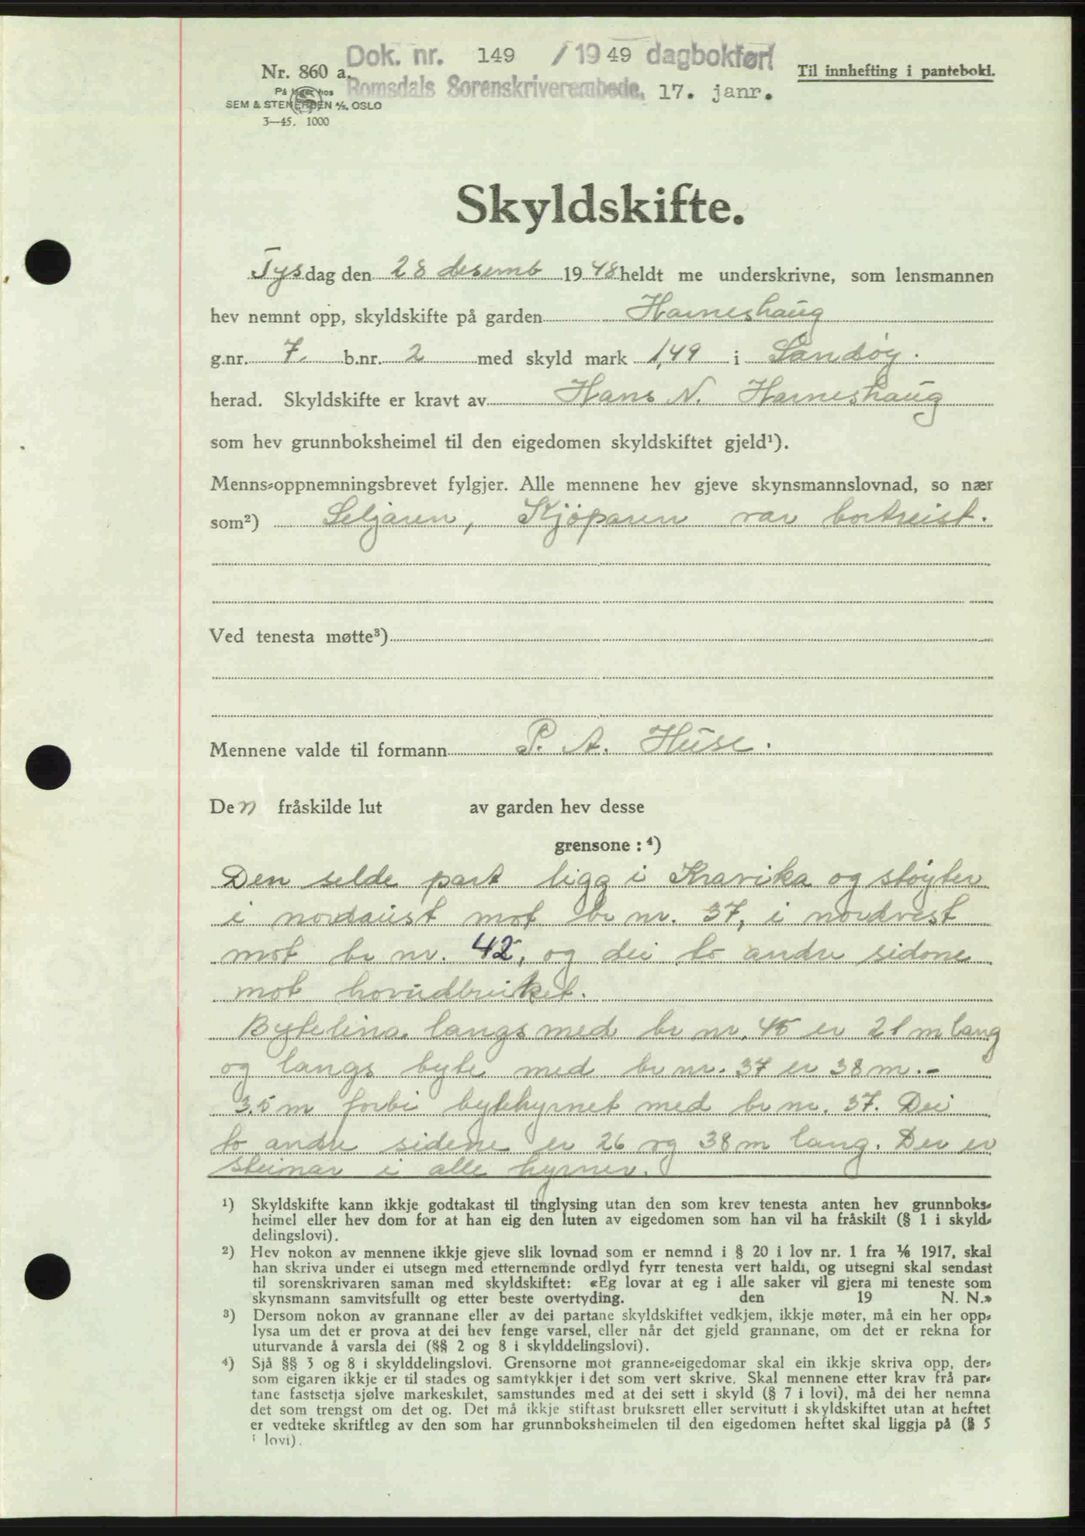 Dok. nr. 149 / 1949 dagbokført
Nr. 860 a.
Til innhefting i pantebok.
Romsdals Sorenskriverembede, 17. janr.
SEM & STENERSEN A/S, OSLO
3—45. 1000
Skyldskifte.
Tysdag den 28 desemb 1948 heldt me underskrivne, som lensmannen
hev nemnt opp, skyldskifte på garden Harneshaug
g.nr. 7. b.nr. 2 med skyld mark 1,49 i Sandøy.
herad. Skyldskifte er kravt av Hans N. Harneshaug
som hev grunnboksheimel til den eigedomen skyldskiftet gjeld¹).
Menns-oppnemningsbrevet fylgjer. Alle mennene hev gjeve skynsmannslovnad, so nær
som²) Seljaren, Kjøparen var bortreist.
Ved tenesta møtte³)
Mennene valde til formann P. A. Huse.
Den fråskilde lut av garden hev desse
grensone: ⁴)
Den selde part ligg i Kravika og støyter
i nordaust mot br nr. 37, i nordvest
mot br nr. 42, og dei to andre sidone
mot hovudbruket.
Bytelina langs med br nr. 45 er 21 m lang
og langs byte med br nr. 37 er 38 m. -
3.5 m forbi bytehyrnet med br nr. 37. Dei
to andre sidene er 26 og 38 m lang. Der er
steinar i alle hyrner.
¹) Skyldskifte kann ikkje godtakast til tinglysing utan den som krev tenesta anten hev grunnboks-
heimel eller hev dom for at han eig den luten av eigedomen som han vil ha fråskilt (§ 1 i skyld-
delingslovi).
²) Hev nokon av mennene ikkje gjeve slik lovnad som er nemnd i § 20 i lov nr. 1 fra 1/6 1917, skal
han skriva under ei utsegn med etternemnde ordlyd fyrr tenesta vert haldi, og utsegni skal sendast
til sorenskrivaren saman med skyldskiftet: «Eg lovar at eg i alle saker vil gjera mi teneste som
skynsmann samvitsfullt og etter beste overtyding. den 19 N. N.»
³) Dersom nokon av grannane eller av dei partane skyldskiftet vedkjem, ikkje møter, må ein her opp-
lysa um det er prova at dei hev fenge varsel, eller når det gjeld grannane, om det er rekna for
uturvande å varsla dei (§§ 2 og 8 i skylddelingslovi).
⁴) Sjå §§ 3 og 8 i skylddelingslovi. Grensorne mot granne-eigedomar skal ein ikkje skriva opp, der-
som eigaren ikkje er til stades og samtykkjer i det som vert skrive. Skal mennene etter krav frå par-
tane fastsetja sjølve markeskilet, samstundes med at dei sett i skyld (§ 7 i lovi), må dei her nemna
det som trengst om det og. Det må ikkje stiftast bruksrett eller servitutt i skyldskiftet utan at heftet
er vedteke skriftleg av den som har grunnboksheimelen til den eigedomen heftet skal liggja på (§ 5
i lovi).